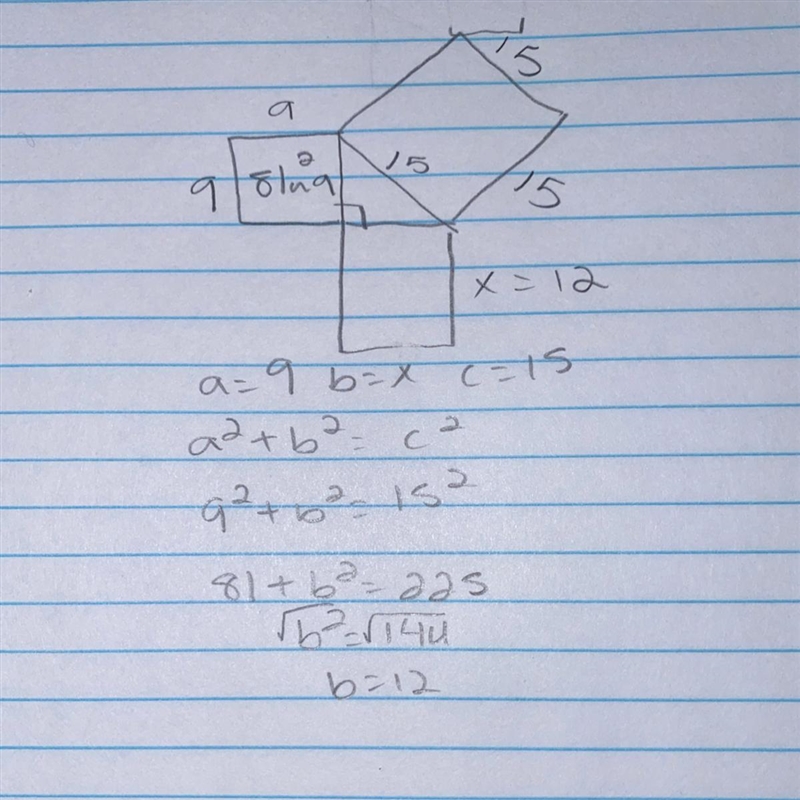 15
9
9 81in²
15
15
x = 12
a = 9 b = x c = 15
a² + b² = c²
9² + b² = 15²
81 + b² = 225
√b² = √144
b = 12